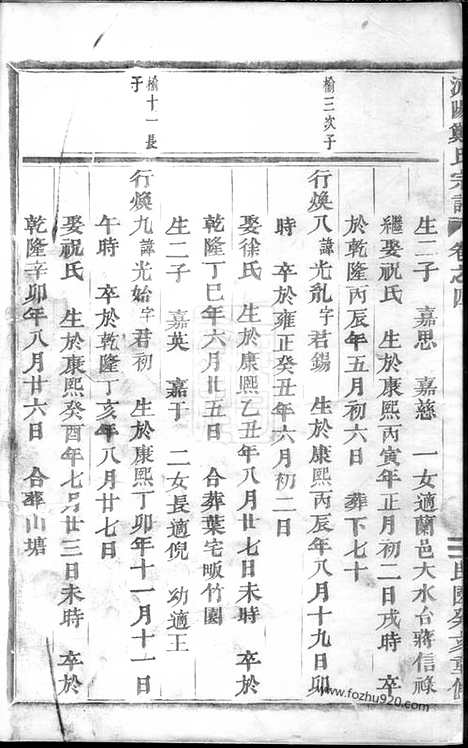 鄭氏宗譜 卷之四 民國癸亥重修
生二子 嘉思 嘉慈 一女適蘭邑大水台蔣信祿
繼娶祝氏 生於康熙丙寅年正月初二日戌時 卒
於乾隆丙辰年五月初六日 葬下七十
榆三次子
行煥八諱光亂字君錫 生於康熙丙辰年八月十九日卯
時 卒於雍正癸丑年六月初二日
娶徐氏 生於康熙乙丑年八月廿七日未時 卒於
乾隆丁巳年六月廿五日 合葬葉宅畈竹園
生二子 嘉英 嘉于 二女長適倪 幼適王
榆十一長子
行煥九諱光始字君初 生於康熙丁卯年十一月十一日
午時 卒於乾隆丁亥年八月廿七日
娶祝氏 生於康熙癸酉年七月廿三日未時 卒於
乾隆辛卯年八月廿六日 合葬山塘
www.fozhu920.com